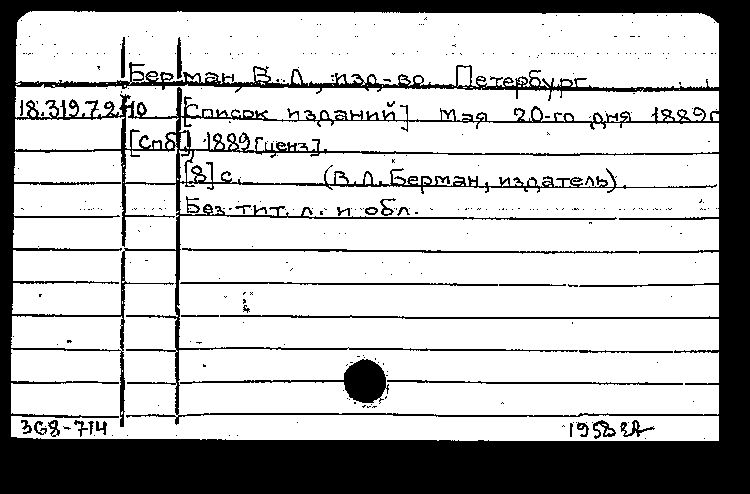 Берман, В. Л., изд-во. Петербург
18.319.7.240 [Список изданий] мая 20-го дня 1889г
[Спб], 1889 [ценз].
[8] с. (В.Л. Берман, издатель).
Без тит. л. и обл.
368-714 1958